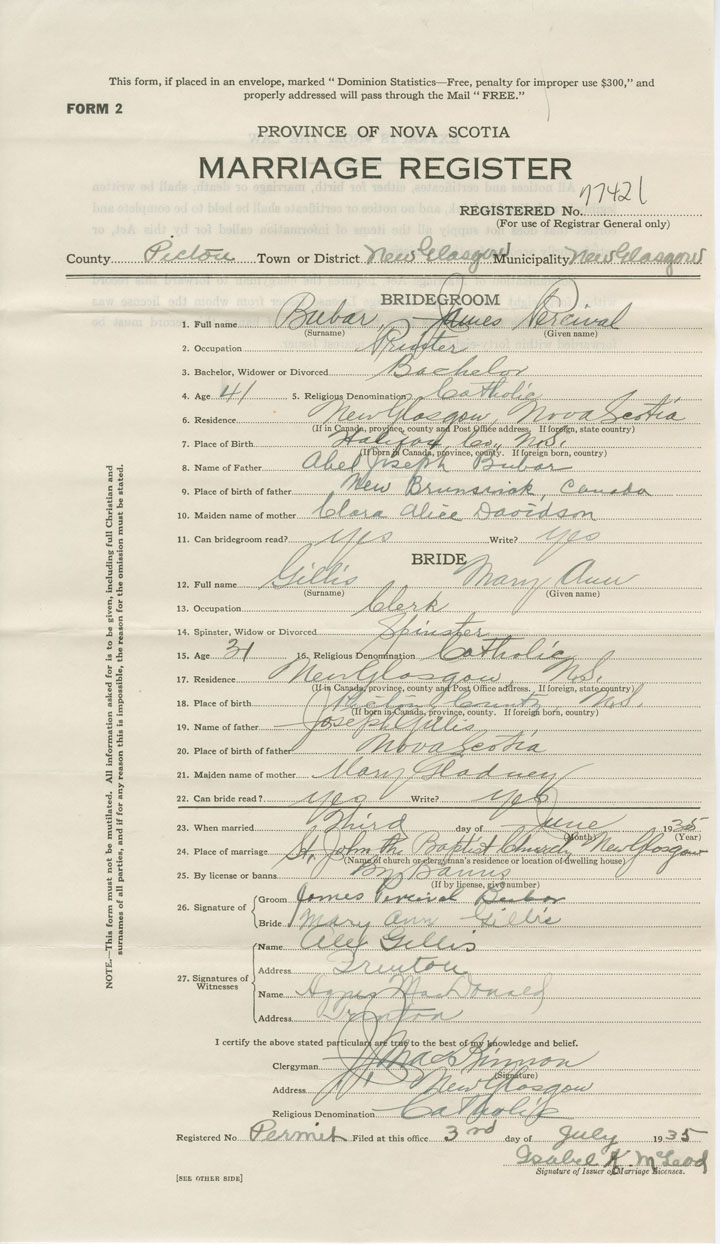 This form, if placed in an envelope, marked " Dominion Statistics—Free, penalty for improper use $300," and
properly addressed will pass through the Mail " FREE."
FORM 2
PROVINCE OF NOVA SCOTIA
MARRIAGE REGISTER
REGISTERED No. 77421
(For use of Registrar General only)
County Pictou Town or District New Glasgow Municipality New Glasgow
BRIDEGROOM
1. Full name Bubar, James Percival
(Surname) (Given name)
2. Occupation Printer
3. Bachelor, Widower or Divorced Bachelor
4. Age 41 5. Religious Denomination Catholic
6. Residence New Glasgow, Nova Scotia
(If in Canada, province, county and Post Office address. If foreign, state country)
7. Place of Birth Halifax Co, N.S.
(If born in Canada, province, county. If foreign born, country)
8. Name of Father Abel Joseph Bubar
9. Place of birth of father New Brunswick, Canada
10. Maiden name of mother Clara Alice Davidson
11. Can bridegroom read? yes Write? yes
BRIDE
12. Full name Gillis Mary Ann
(Surname) (Given name)
13. Occupation Clerk
14. Spinster, Widow or Divorced Spinster
15. Age 31 16. Religious Denomination Catholic
17. Residence New Glasgow, N.S.
(If in Canada, province, county and Post Office address. If foreign, state country)
18. Place of birth Pictou County N.S.
(If born in Canada, province, county. If foreign born, country)
19. Name of father Joseph Gillis
20. Place of birth of father Nova Scotia
21. Maiden name of mother Mary Gladney
22. Can bride read? yes Write? yes
23. When married Third day of June 1935
(Month) (Year)
24. Place of marriage St. John the Baptist Church, New Glasgow
(Name of church or clergyman's residence or location of dwelling house)
25. By license or banns By Banns
(If by license, give number)
26. Signature of Groom James Percival Bubar
Bride Mary Ann Gillis
27. Signatures of Witnesses Name Alex Gillis
Address Trenton
Name Agnes MacDonald
Address Trenton
I certify the above stated particulars are true to the best of my knowledge and belief.
Clergyman J. J. MacKinnon
(Signature)
Address New Glasgow
Religious Denomination Catholic
Registered No Permit Filed at this office 3rd day of July 1935
Isabel K. McLeod
Signature of Issuer of Marriage Licenses.
[SEE OTHER SIDE]
NOTE.—This form must not be mutilated. All information asked for is to be given, including full Christian and
surnames of all parties, and if for any reason this is impossible, the reason for the omission must be stated.